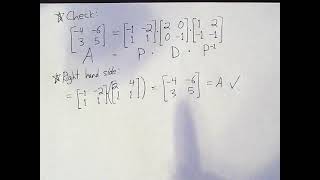 * Check:
[-4 -6; 3 5] = [-1 -2; 1 1] · [2 0; 0 -1] · [1 2; -1 -1]
A = P · D · P⁻¹
* Right hand side:
= [-1 -2; 1 1] · ([2 4; 1 1]) = [-4 -6; 3 5] = A ✓